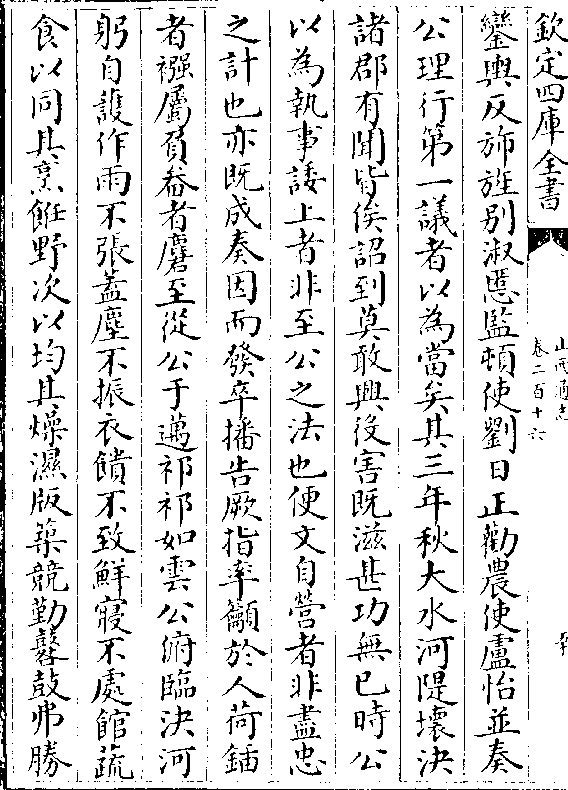 欽定四庫全書
山西通志
卷二百十六
鑾輿反斾旌别淑慝監頓使劉日正勸農使盧怡並奏
公理行第一議者以為當矣其三年秋大水河隄壞決
諸郡有聞皆俟詔到莫敢興役害既滋甚功無已時公
以為執事諉上者非至公之法也便文自營者非盡忠
之計也亦既成奏因而發卒播告厥指率籲於人荷鍤
者襁屬負畚者麕至從公于邁祁祁如雲公俯臨決河
躬自護作雨不張蓋塵不振衣饋不致鮮寢不處館蔬
食以同其烹飪野次以均其燥濕版築競勤鼛鼓弗勝